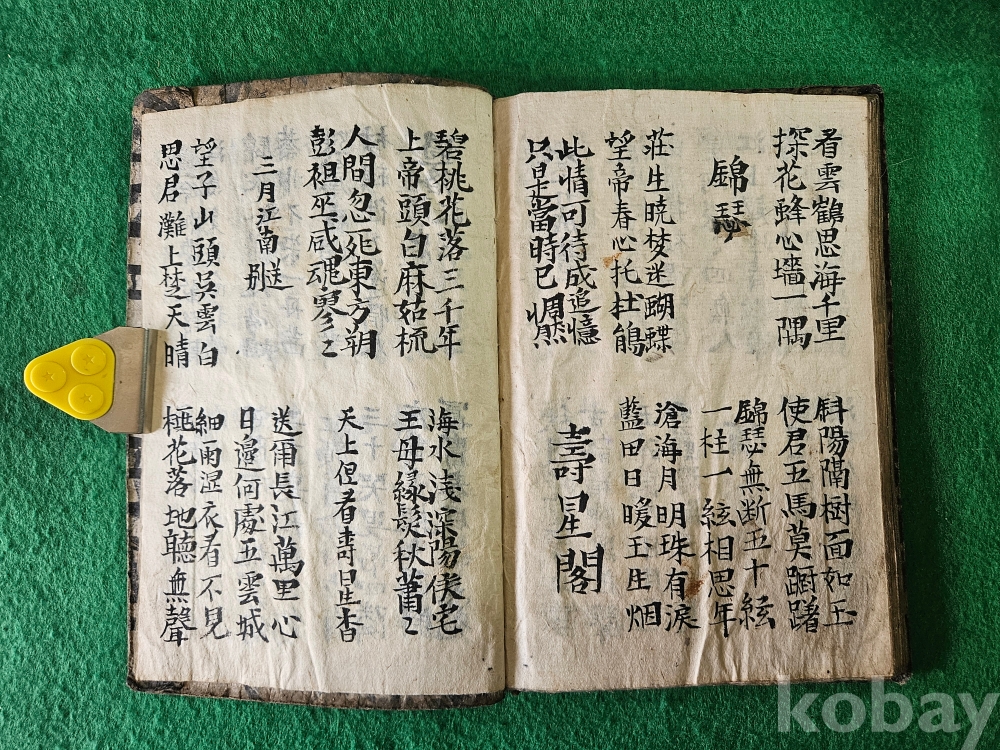 看雲鶴思海千里
探花蜂心墻一隅
斜陽隔樹面如玉
使君五馬莫踟躇
錦瑟
錦瑟無断五十絃
一柱一絃相思年
莊生曉梦迷蝴蝶
望帝春心托杜鵑
滄海月明珠有淚
藍田日暖玉生烟
此情可待成追憶
只是當時已惘然
壽星閣
碧桃花落三千年
上帝頭白麻姑梳
海水浅深陽侯宅
王母緑鬓秋蕭〻
人間忽死東方朔
彭祖巫咸魂寥〻
天上但看壽星杳
三月江南送別
送爾長江萬里心
日邊何處五雲城
望子山頭吳雲白
思君灘上楚天晴
細雨湿衣看不見
花落地聽無聲
kobay